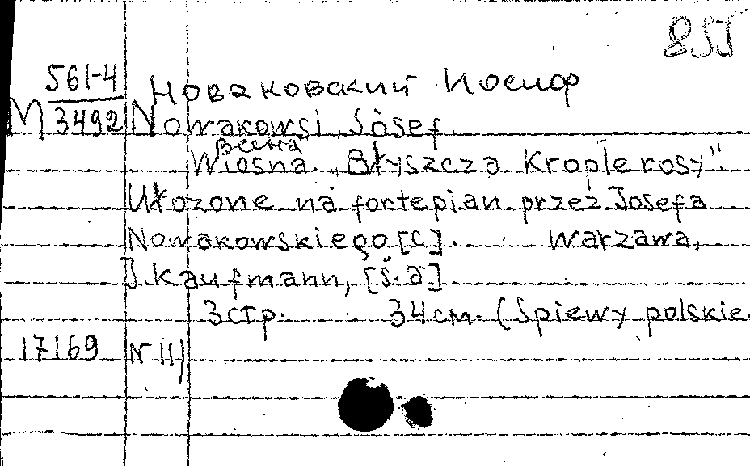 855
561-4 Новаковский Иосиф
М 3492 Nowakowsi Josef
Весна
Wiosna. „Błyszcza Krople rosy".
Ułozone na fortepian przez Josefa
Nowakowskiego [с]. Warzawa,
J. Kaufmann, [s.a]
3 стр. 34 см. (Spiewy polskie
17169 N 11)